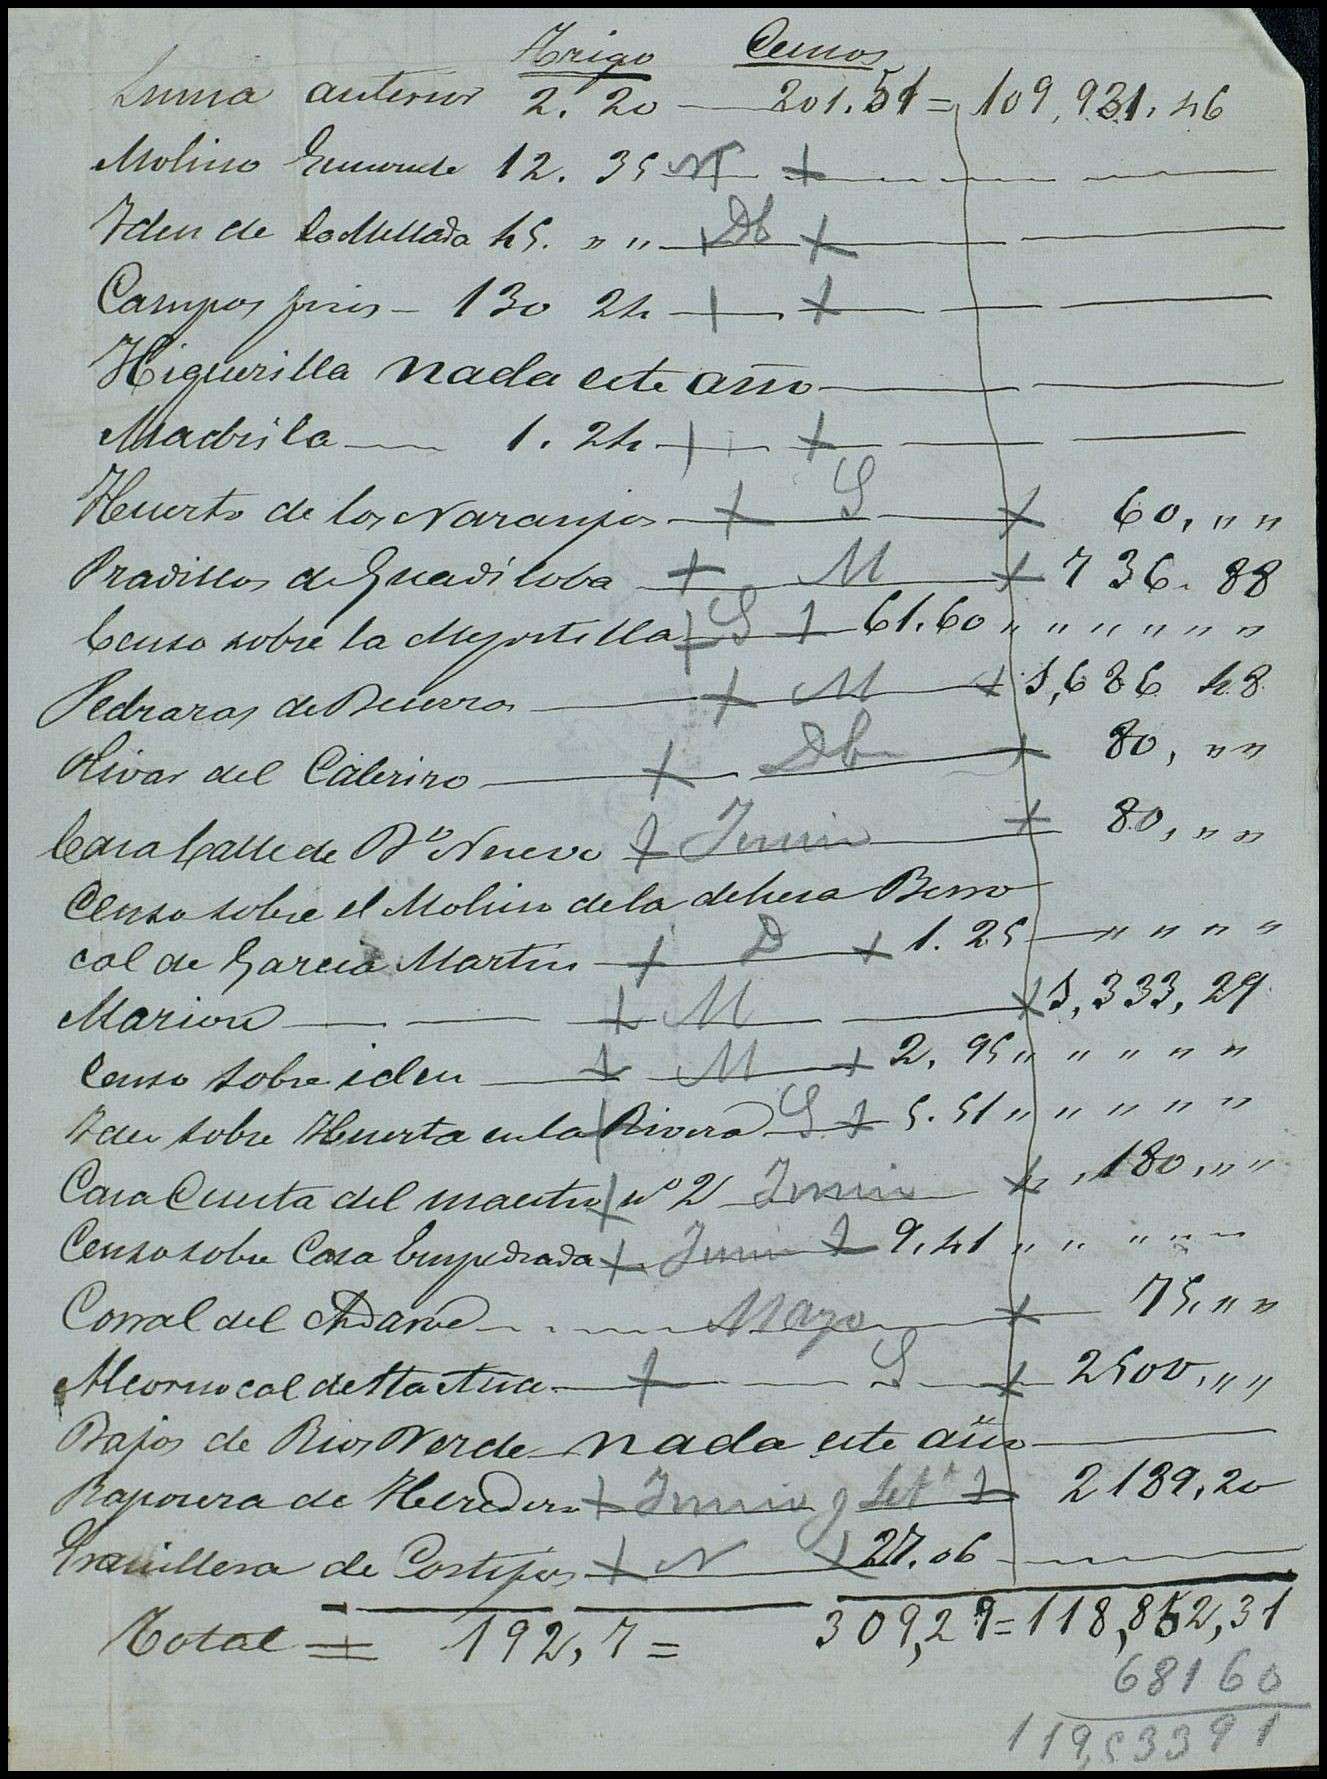 Trigo Censos
Suma anterior 2. 20 — 201.51 = 109,931.46
Molino 12. 35 N +
Yden de la Mellada 45. " " Db +
Campos frios - 130 24 +
Higuerilla nada este año
Madrila 1. 24 +
Huerto de los Naranjos + S + 60, " "
Pradillos de Guadiloba + M + 736. 88
Censo sobre la Mayostilla + S + 61.60 " " " " " "
Pedraras de Becerra + M + 1,686 48
Olivar del Calerizo + Db + 80, " "
Casa Calle de Bº Nuevo + Junio + 80, " "
Censo sobre el Molino de la dehesa Berro
cal de Garcia Martin + D + 1. 25 " " " "
Marion + M + 1,333,29
Censo sobre iden + M + 2. 95 " " " " "
Yden sobre Huerta en la Rivera S + 5.51 " " " " "
Casa Cuesta del maestro nº 2 Junio + 180, " "
Censo sobre Casa Empedrada + Junio + 9,41 " " " " "
Corral del Adarve Mayo + 75, " "
Alcornocal de Sta Ana + S + 2500, " "
Bajos de Rios Verde nada este año
Raposera de Heredero + Junio y Setº + 2189,20
de Cortijos + N + 27.06
Total = 192,7 = 309,29 = 118,852,31
68160
119,53391